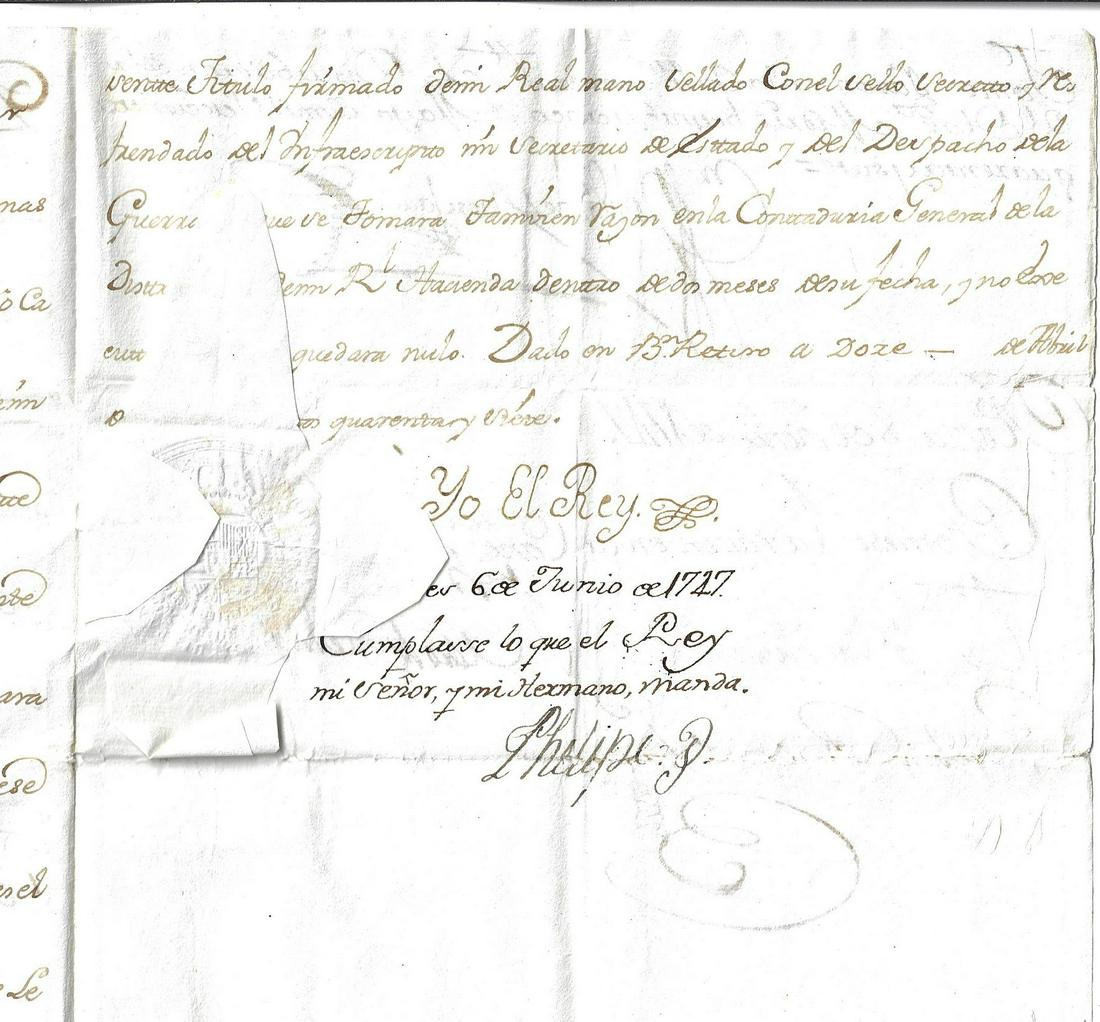 sente Titulo firmado demi Real mano Sellado Conel Sello Secretto y Re
frendado del Infraescripto mi Secretario de Estado y del Despacho dela
Guerra que se Tomara Tamvien razon enla Contaduria General de la
Distr demi Rl Hacienda dentro de dos meses desu fecha, y no
quedara nulo. Dado en B. Retiro a Doze — de Abril
os quarenta y siete.
Yo El Rey.
es 6 de Junio de 1747.
Cumplasse lo que el Rey
mi Señor, y mi Hermano, manda.
Phelipe
r
nas
o Ca
emi
nte
ara
ese
es el
Le